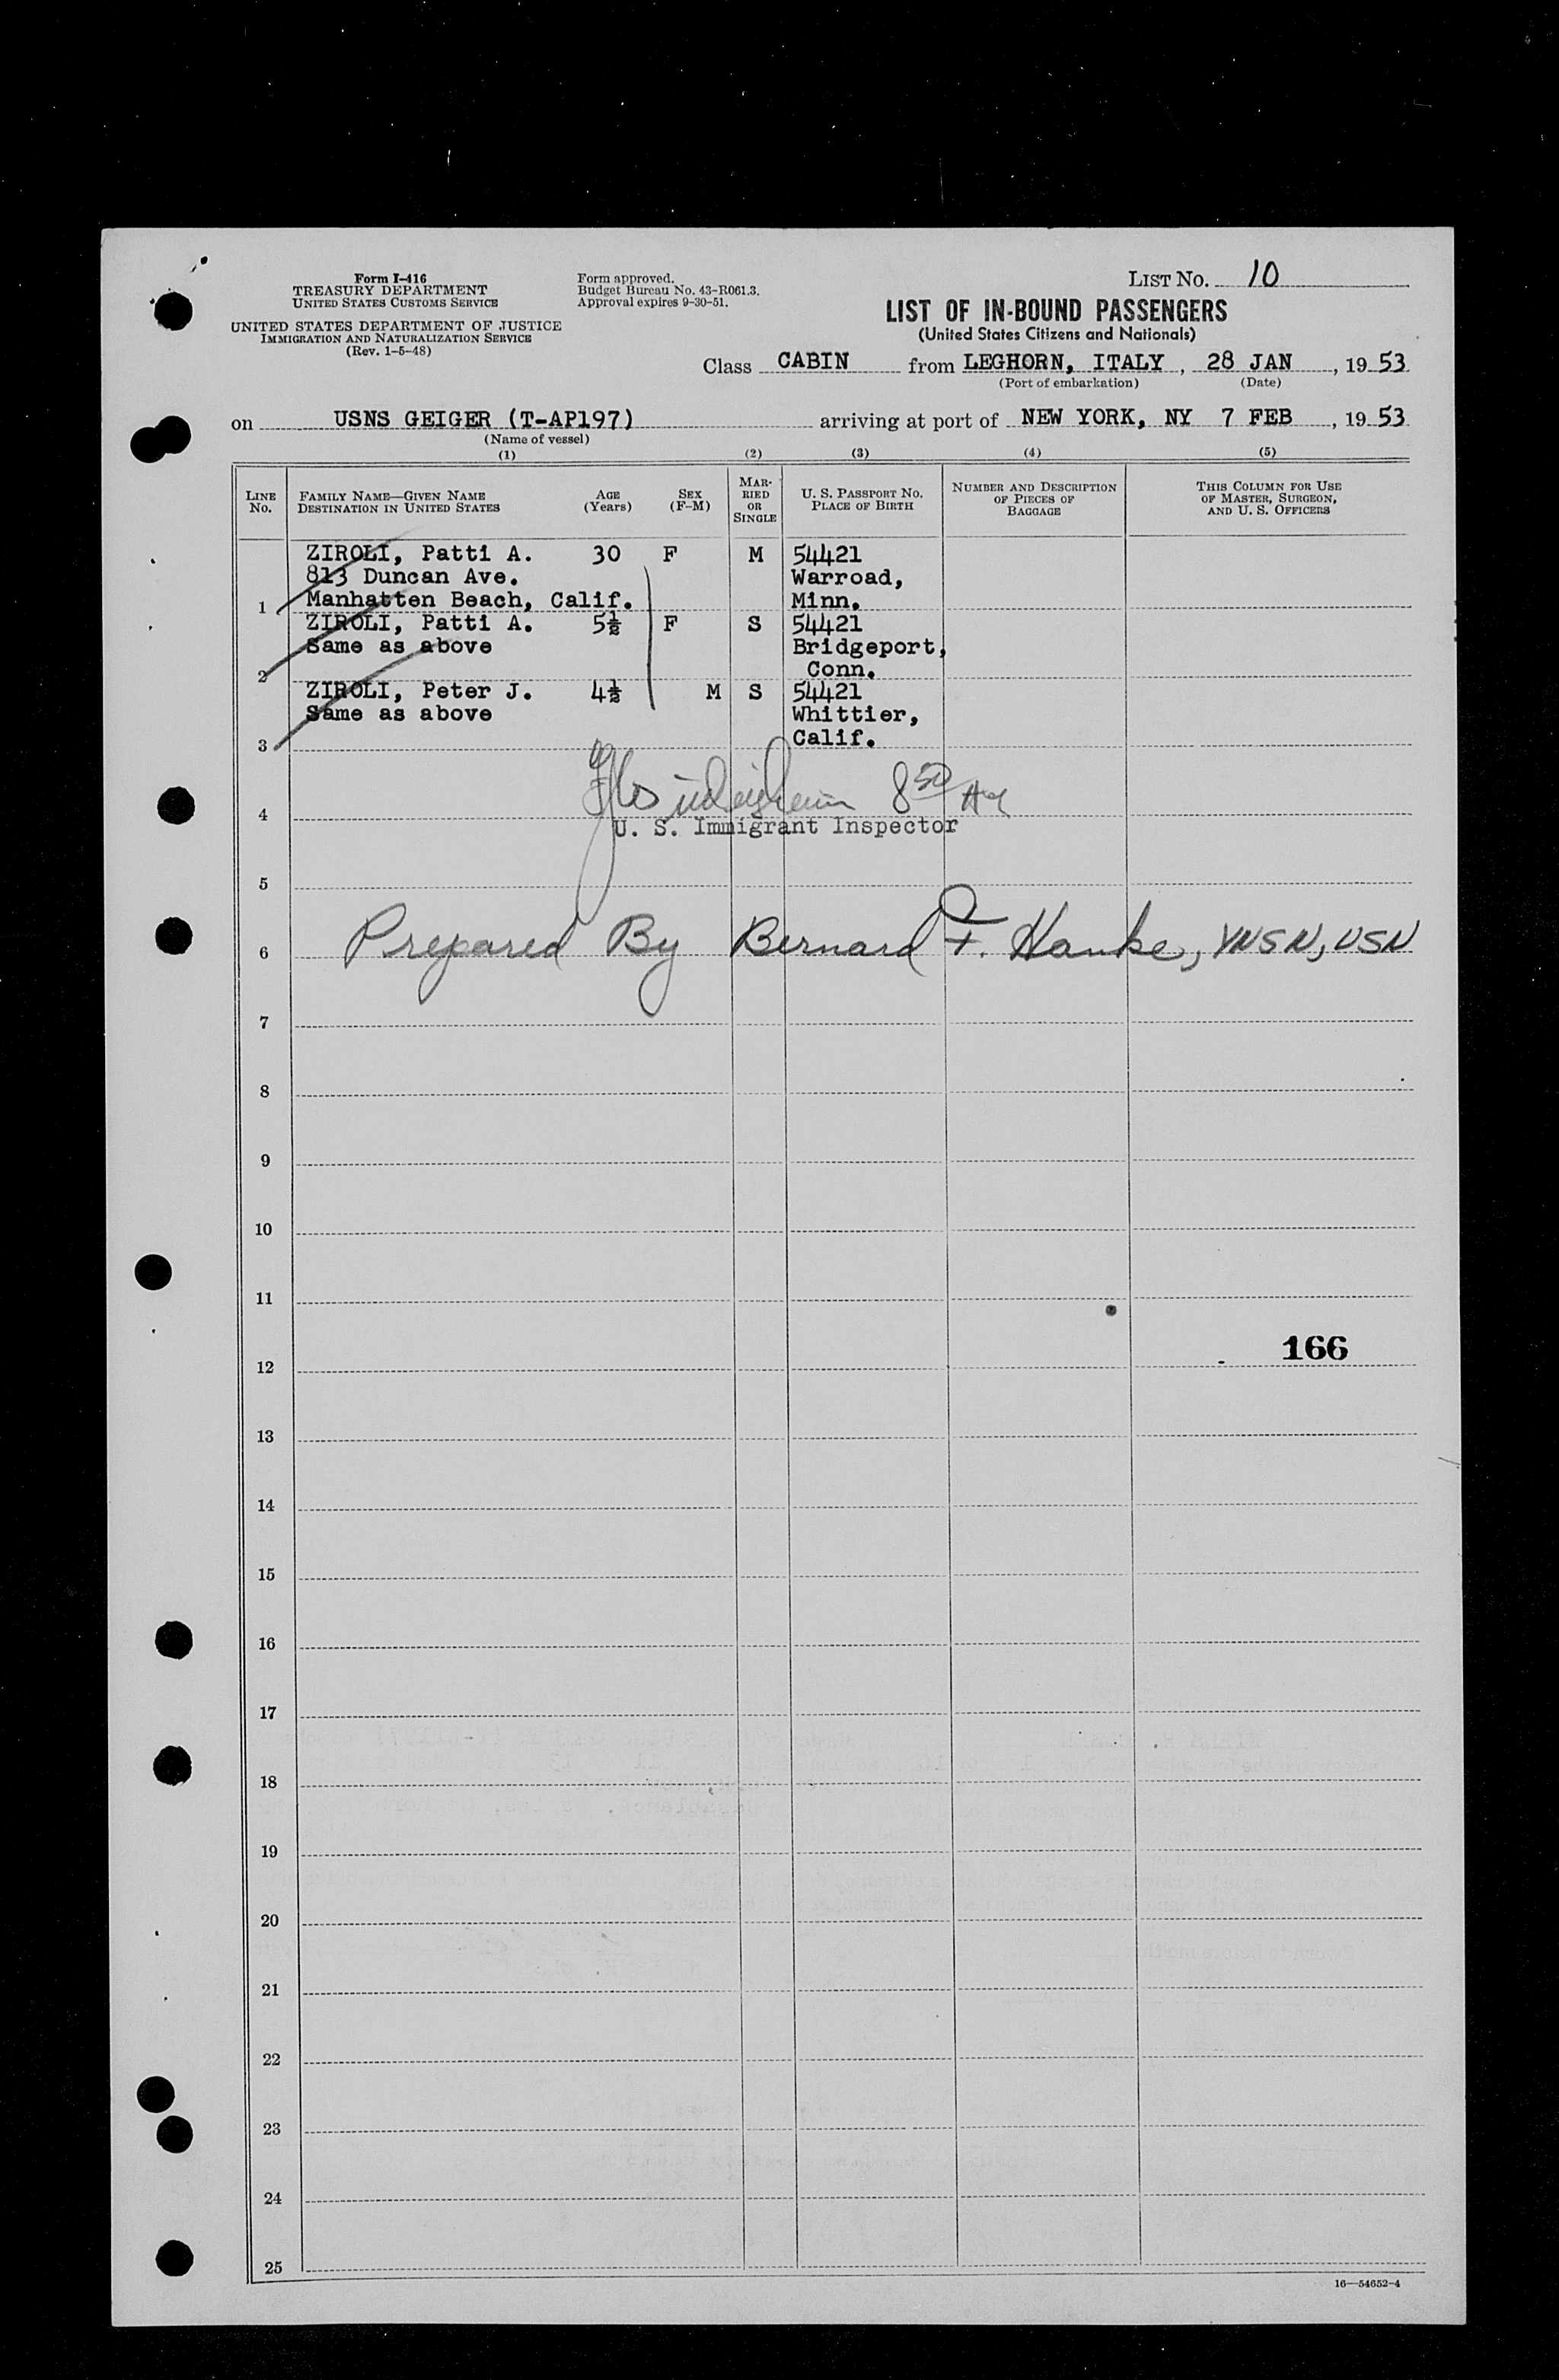 Form I-416
TREASURY DEPARTMENT
UNITED STATES CUSTOMS SERVICE
UNITED STATES DEPARTMENT OF JUSTICE
IMMIGRATION AND NATURALIZATION SERVICE
(Rev. 1-5-48)
Form approved.
Budget Bureau No. 43-R061.3.
Approval expires 9-30-51.
LIST NO. 10
LIST OF IN-BOUND PASSENGERS
(United States Citizens and Nationals)
Class CABIN from LEGHORN, ITALY, 28 JAN, 1953
(Port of embarkation) (Date)
on USNS GEIGER (T-AP197) arriving at port of NEW YORK, NY 7 FEB, 1953
(Name of vessel)
(1) (2) (3) (4) (5)
LINE No.
FAMILY NAME—GIVEN NAME
DESTINATION IN UNITED STATES
AGE (Years)
SEX (F-M)
MARRIED OR SINGLE
U. S. PASSPORT NO.
PLACE OF BIRTH
NUMBER AND DESCRIPTION
OF PIECES OF
BAGGAGE
THIS COLUMN FOR USE
OF MASTER, SURGEON,
AND U. S. OFFICERS
ZIROLI, Patti A. 30 F M 54421
813 Duncan Ave. Warroad,
1 Manhatten Beach, Calif. Minn.
ZIROLI, Patti A. 5½ F S 54421
Same as above Bridgeport,
2 Conn.
ZIROLI, Peter J. 4½ M S 54421
Same as above Whittier,
3 Calif.
8 50
4
U. S. Immigrant Inspector
5
6 Prepared By Bernard F. Hanke, YNSN, USN
7
8
9
10
11
166
12
13
14
15
16
17
18
19
20
21
22
23
24
25
16—54652-4